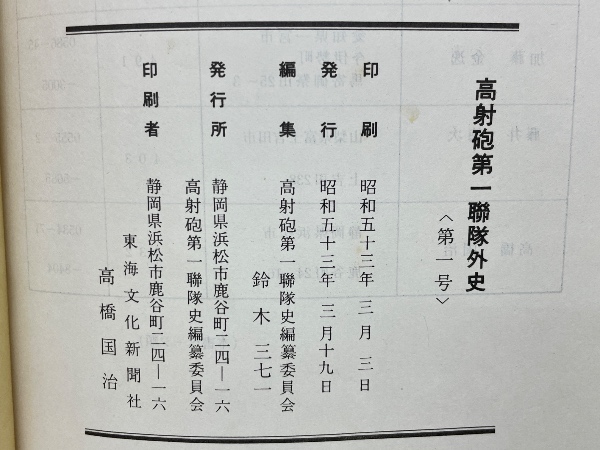 高射砲第一聯隊外史
〈第二号〉
印刷 昭和五十三年 三月 三日
発行 昭和五十三年 三月十九日
編集 高射砲第一聯隊史編纂委員会
鈴木 三七一
発行所 静岡県浜松市鹿谷町二四―一六
高射砲第一聯隊史編纂委員会
印刷者 静岡県浜松市鹿谷町二四―一六
東海文化新聞社
高橋国治